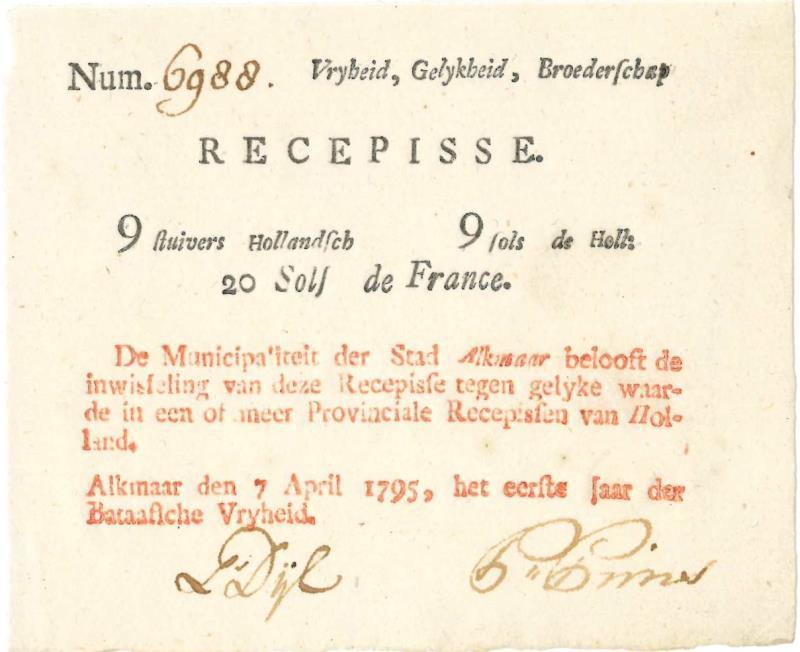 Num. 6988. Vryheid, Gelykheid, Broederſchap
RECEPISSE.
9 ſtuivers Hollandſch 9 ſols de Holl:
20 Solſ de France.
De Municipaliteit der Stad Alkmaar belooft de
inwiſſeling van deze Recepiſſe tegen gelyke waar-
de in een of meer Provinciale Recepiſſen van Hol-
land.
Alkmaar den 7 April 1795, het eerſte Jaar der
Bataafſche Vryheid.
Dÿl